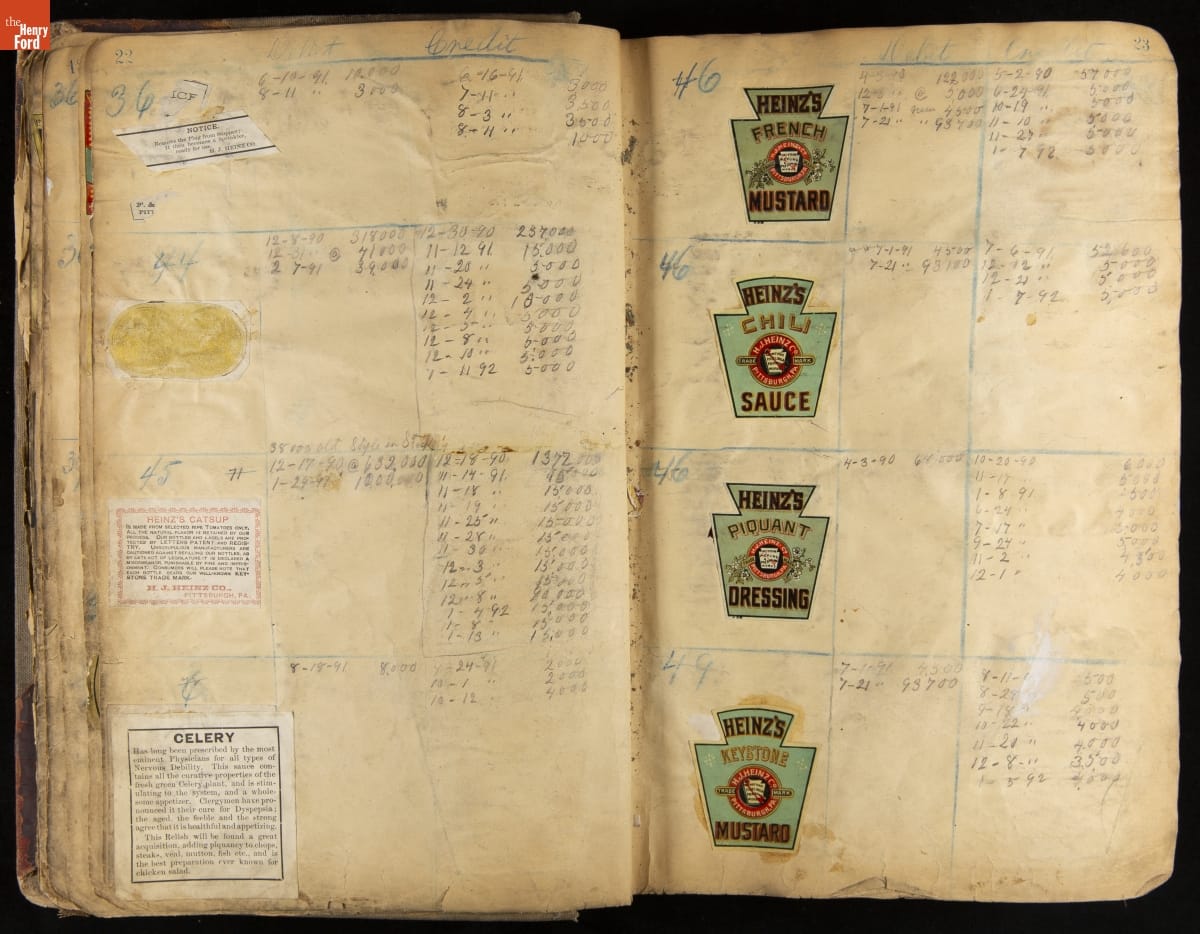 the
Henry
Ford
22
Debit Credit
36
ICF
NOTICE.
Remove the Plug from Stopper;
it then becomes a Sprinkler,
ready for use.
H. J. HEINZ CO.
P. &
PITT
6-10-91 10,000
8-11 " 3000
6-16-91 3000
7-11 " 3500
8-3 " 3500
8-11 " 1000
44
12-8-90 318000
12-31 " @ 41000
2 7-91 39,000
12-30-90 237000
11-12 91 15.000
11-20 " 5-000
11-24 " 5-000
12-2 " 10-000
12-4 " 5.000
12-5 " 5.000
12-8 " 5-000
12-10 " 5.000
1-11 92 5-000
38000 old Style in Stock
45
12-17-90 @ 632,000
1-29-91 1000,000
12-18-90 1377,000
11-14-91
11-18 " 15.000
11-19 " 15.000
11-25 " 15-000
11-28 " 15.000
11-30 " 15.000
12-3 " 15.000
12-5 " 15.000
12-8 "
1-4 92 15.000
1-8 " 15.000
1-13 " 15.000
HEINZ'S CATSUP
IS MADE FROM SELECTED RIPE TOMATOES ONLY,
ALL THE NATURAL FLAVOR IS RETAINED BY OUR
PROCESS. OUR BOTTLES AND LABELS ARE PRO-
TECTED BY LETTERS PATENT AND REGIS-
TRY. UNSCRUPULOUS MANUFACTURERS ARE
CAUTIONED AGAINST REFILLING OUR BOTTLES, AS
BY LATE ACT OF LEGISLATURE IT IS DECLARED A
MISDEMEANOR, PUNISHABLE BY FINE AND IMPRIS-
ONMENT. CONSUMERS WILL PLEASE NOTE THAT
EACH BOTTLE BEARS OUR WELL-KNOWN KEY-
STONE TRADE MARK.
H. J. HEINZ CO.,
PITTSBURGH, PA.
8-18-91 8,000
9-24-91 2000
10-1 " 2000
10-12 " 4000
CELERY
Has long been prescribed by the most
eminent Physicians for all types of
Nervous Debility. This sauce con-
tains all the curative properties of the
fresh green Celery plant, and is stim-
ulating to the system, and a whole-
some appetizer. Clergymen have pro-
nounced it their cure for Dyspepsia;
the aged, the feeble and the strong
agree that it is healthful and appetizing.
This Relish will be found a great
acquisition, adding piquancy to chops,
steaks, veal, mutton, fish etc., and is
the best preparation ever known for
chicken salad.
23
Debit Credit
46
HEINZ'S
FRENCH
H.J. HEINZ CO.
PITTSBURGH, PA.
MUSTARD
4-3-90 122,000
12-8 " @ 5,000
7-1-91 green 4500
7-21 " 93700
5-2-90 57000
6-24-91 5000
10-19 " 5000
11-10 " 5000
11-27 " 5000
1-7 92 5000
46
HEINZ'S
CHILI
H.J. HEINZ CO.
TRADE MARK
PITTSBURGH, PA.
SAUCE
7-1-91 4500
7-21 " 93700
7-6-91 52600
12-12 " 5000
12-21 " 5000
1-7-92 5,000
46
HEINZ'S
PIQUANT
H.J. HEINZ CO.
PITTSBURGH, PA.
DRESSING
4-3-90 64,000
10-20-90 6000
11-17 5000
1-8-91
6-24 "
7-17 "
9-24 " 5000
11-2 " 4300
12-1 " 4000
49
HEINZ'S
KEYSTONE
H.J. HEINZ CO.
TRADE MARK
PITTSBURGH, PA.
MUSTARD
7-1-91 4,500
7-21 " 93700
8-11
8-29 500
9-18 4000
10-22 " 4000
11-20 " 4,000
12-8- " 3,500
1-5 92 4,000